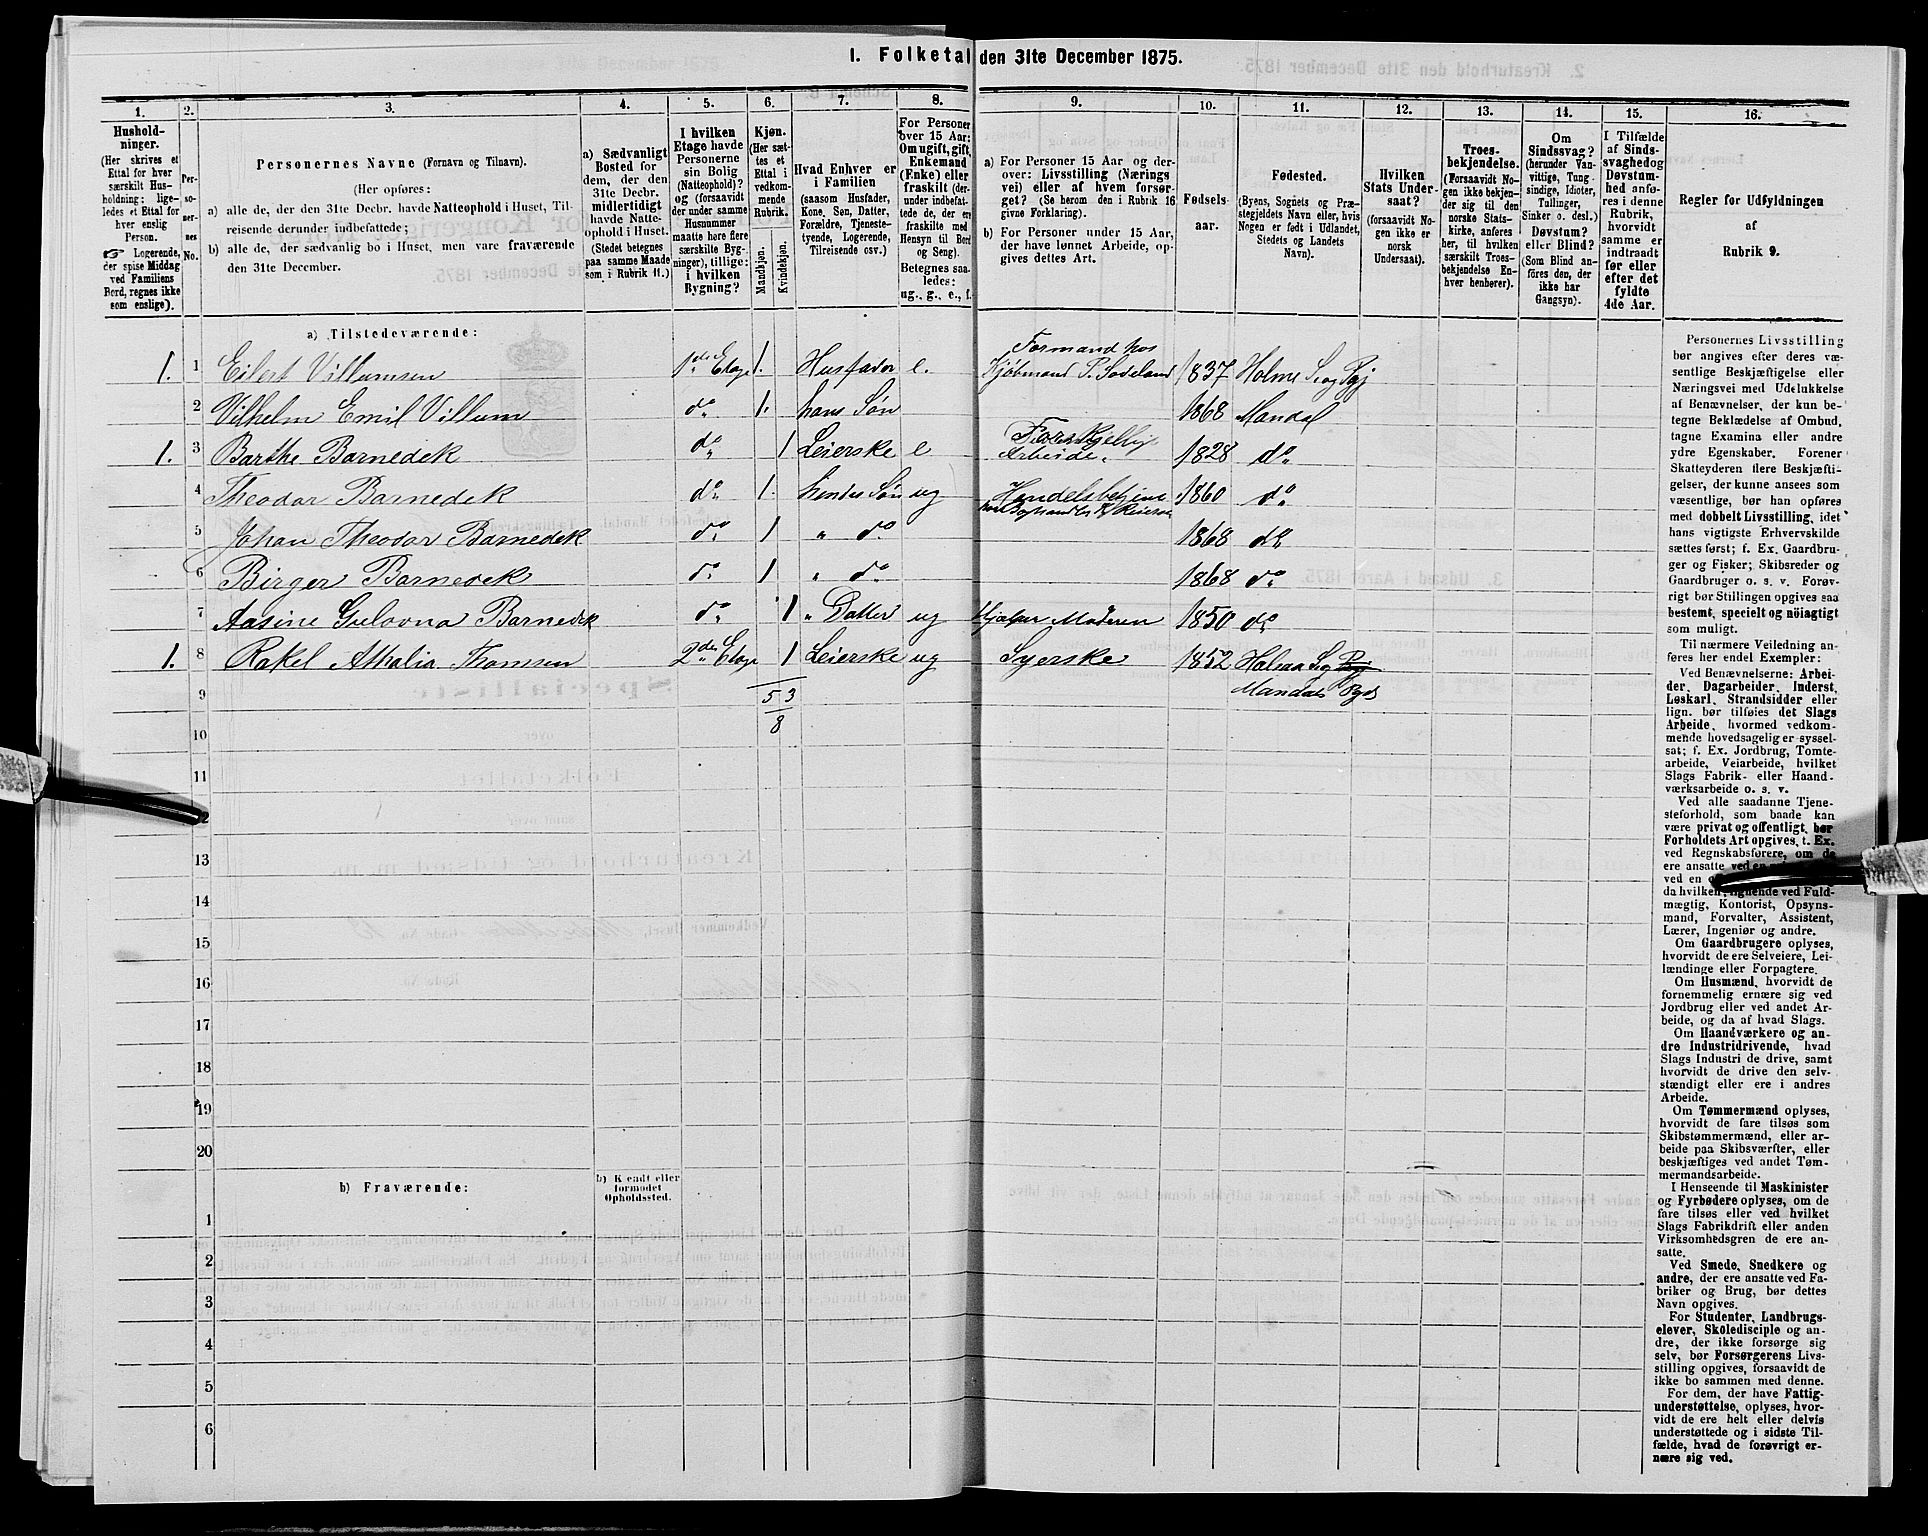 1. Folketal den 31te December 1875.
1.
2.
3.
4.
5.
6.
7.
8.
9.
10.
11.
12.
13.
14.
15.
16.
Hushold-
ninger.
(Her skrives et
Ettal for hver
særskilt Hus-
holdning; lige-
ledes et Ettal for
hver enslig
Person.
☞ Logerende,
der spise Middag
ved Familiens
Bord, regnes ikke
som enslige).
Per-
so-
ner-
nes
No.
Personernes Navne (Fornavn og Tilnavn).
(Her opføres:
a) alle de, der den 31te Decbr. havde Natteophold i Huset, Til-
reisende derunder indbefattede;
b) alle de, der sædvanlig bo i Huset, men vare fraværende
den 31te December.
a) Sædvanligt
Bosted for
dem, der den
31te Decbr.
midlertidigt
havde Natte-
ophold i Huset.
(Stedet betegnes
paa samme Maade
som i Rubrik 11.)
I hvilken
Etage havde
Personerne
sin Bolig
(Natteophold)?
og (forsaavidt
der under samme
Husnummer
maatte høre flere
særskilte Byg-
ninger), tillige:
i hvilken
Bygning?
Kjøn.
(Her sæt-
tes et
Ettal i
vedkom-
mende
Rubrik.
Mandkjøn.
Kvindekjøn.
Hvad Enhver er
i Familien
(saasom Husfader,
Kone, Søn, Datter,
Forældre, Tjeneste-
tyende, Logerende,
Tilreisende osv.)
For Personer
over 15 Aar:
Om ugift, gift,
Enkemand
(Enke) eller
fraskilt (der-
under indbefat-
tede de, der ere
fraskilte med
Hensyn til Bord
og Seng).
Betegnes saa-
ledes:
ug., g., e., f.
a) For Personer 15 Aar og der-
over: Livsstilling (Nærings
vei) eller af hvem forsør-
get? (Se herom den i Rubrik 16
givne Forklaring).
b) For Personer under 15 Aar,
der have lønnet Arbeide, op-
gives dettes Art.
Fødsels-
aar.
Fødested.
(Byens, Sognets og Præ-
stegjeldets Navn eller, hvis
Nogen er født i Udlandet,
Stedets og Landets
Navn).
Hvilken
Stats Under-
saat?
(forsaavidt No-
gen ikke er
norsk
Undersaat).
Troes-
bekjendelse.
(Forsaavidt No-
gen ikke bekjen-
der sig til den
norske Stats-
kirke, anføres
her, til hvilken
særskilt Troes-
bekjendelse En-
hver henhører).
Om
Sindssvag?
(herunder Van-
vittige, Tung-
sindige, Idioter,
Tullinger,
Sinker o. desl.)
Døvstum?
eller Blind?
(Som Blind an-
føres den, der
ikke har
Gangsyn).
I Tilfælde
af Sinds-
svaghed og
Døvstum-
hed anfø-
res i denne
Rubrik,
hvorvidt
samme er
indtraadt
før eller
efter det
fyldte
4de Aar.
Regler for Udfyldningen
af
Rubrik 9.
a) Tilstedeværende:
1. 1 Eilert Villumsen 1ste Etage 1. Husfader e. Formand hos
Kjøbmand P. Sodeland 1837 Holme S. og Pgj
2 Vilhelm Emil Villum do 1. hans Søn 1868 Mandal
1. 3 Barthe Barnedek do 1 Leierske e Forskjellig
Arbeide. 1828 do
4 Theodor Barnedek do 1. hendes Søn ug Handelsbetjent
1860 do
5 Johan Theodor Barnedek do 1 " do 1868 do
6 Birger Barnedek do 1 " do 1868 do
7 Aasine Gulovna Barnedek do 1 " Datter ug Hjælper Moderen 1850 do
1. 8 Rakel Athalia Thomsen 2den Etage 1 Leierske ug Syerske 1852 Holme Sog
Mandals Pgj
9 5 3
10 8
11
13
14
15
16
17
18
19
20
b) Fraværende:
b) Kjendt eller
formodet
Opholdssted.
1
2
3
4
5
6
Personernes Livsstilling
bør angives efter deres væ-
sentlige Beskjæftigelse eller
Næringsvei med Udelukkelse
af Benævnelser, der kun be-
tegne Beklædelse af Ombud,
tagne Examina eller andre
ydre Egenskaber. Forener
Skatteyderen flere Beskjæfti-
gelser, der kunne ansees som
væsentlige, bør han opføres
med dobbelt Livsstilling, idet
hans vigtigste Erhvervskilde
sættes først; f. Ex. Gaardbru-
ger og Fisker; Skibsreder og
Gaardbruger o. s. v. Forøv-
rigt bør Stillingen opgives saa
bestemt, specielt og nöiagtigt
som muligt.
Til nærmere Veiledning an-
føres her endel Exempler:
Ved Benævnelserne: Arbei-
der, Dagarbeider, Inderst,
Løskarl, Strandsidder eller
lign. bør tilføies det Slags
Arbeide, hvormed vedkom-
mende hovedsagelig er syssel-
sat; f. Ex. Jordbrug, Tomte-
arbeide, Veiarbeide, hvilket
Slags Fabrik- eller Haand-
værksarbeide o. s. v.
Ved alle saadanne Tjene-
steforhold, som baade kan
være privat og offentligt, bør
Forholdets Art opgives, t. Ex.
ved Regnskabsførere, om de
ere ansatte
ved en
da hvilken lignende ved Fuld-
mægtig, Kontorist, Opsyns-
mand, Forvalter, Assistent,
Lærer, Ingeniør og andre.
Om Gaardbrugere oplyses,
hvorvidt de ere Selveiere, Lei-
lændinge eller Forpagtere.
Om Husmænd, hvorvidt de
fornemmelig ernære sig ved
Jordbrug eller ved andet Ar-
beide, og da af hvad Slags.
Om Haandværkere og an-
dre Industridrivende, hvad
Slags Industri de drive, samt
hvorvidt de drive den selv-
stændigt eller ere i andres
Arbeide.
Om Tømmermænd oplyses,
hvorvidt de fare tilsøs som
Skibstømmermænd, eller ar-
beide paa Skibsværfter, eller
beskjæftiges ved andet Tøm-
mermandsarbeide.
I Henseende til Maskinister
og Fyrbødere oplyses, om de
fare tilsøs eller ved hvilket
Slags Fabrikdrift eller anden
Virksomhedsgren de ere an-
satte.
Ved Smede, Snedkere og
andre, der ere ansatte ved Fa-
briker og Brug, bør dettes
Navn opgives.
For Studenter, Landbrugs-
elever, Skoledisciple og an-
dre, der ikke forsørge sig
selv, bør Forsørgerens Livs-
stilling opgives, forsaavidt de
ikke bo sammen med denne.
For dem, der have Fattig-
understøttelse, oplyses, hvor-
vidt de ere helt eller delvis
understøttede og i sidste Til-
fælde, hvad de forøvrigt er-
nære sig ved.